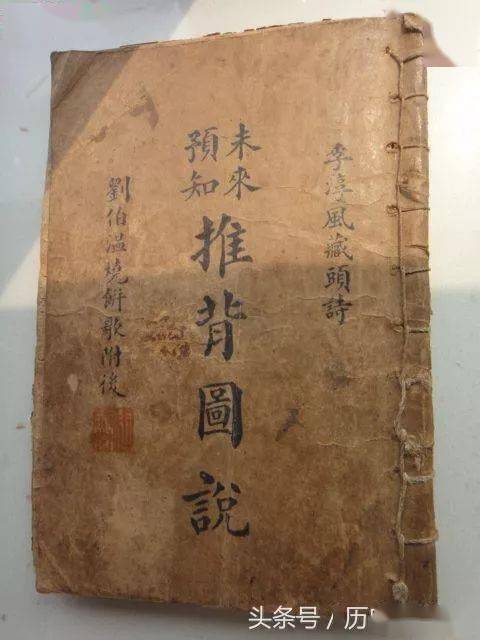 李淳風藏頭詩
未來
預知
推背圖說
劉伯温燒餅歌附後
头条号 / 历